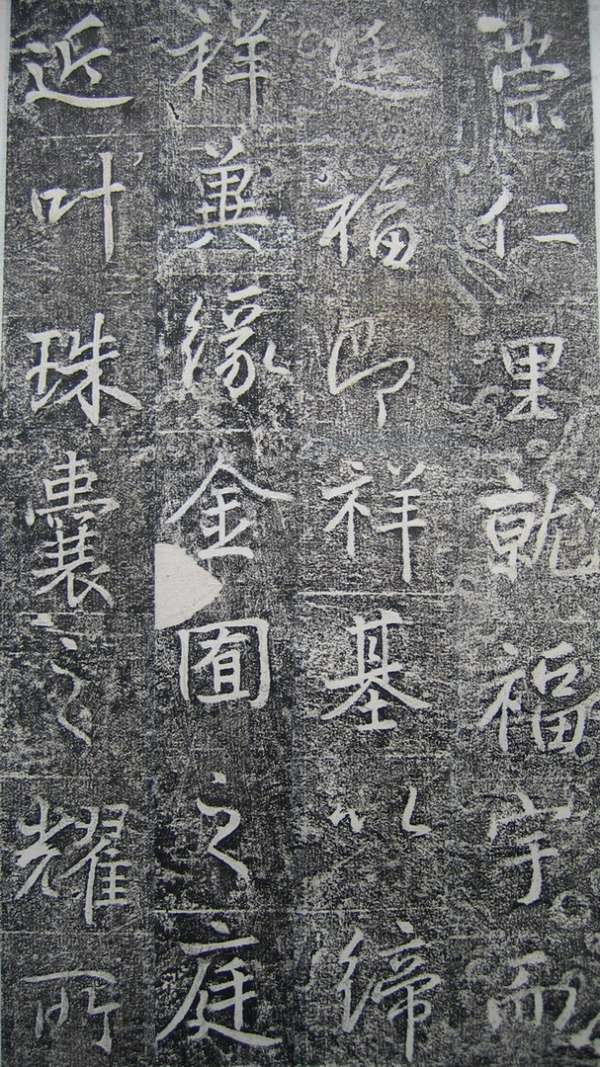 崇仁里就福宇而
延福即祥基以締
祥冀緣金囿之庭
近叶珠囊之耀所